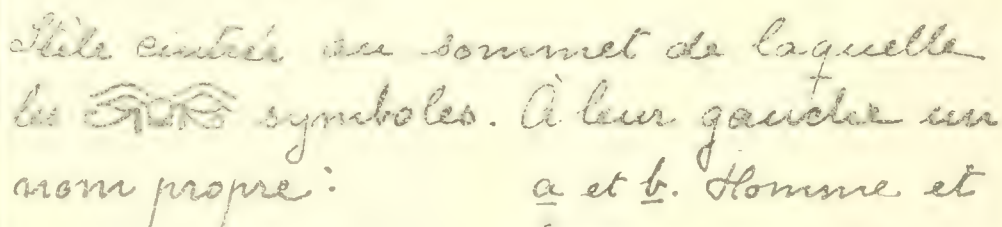 Stèle cintrée au sommet de laquelle
les symboles. À leur gauche un
nom propre: a et b. Homme et